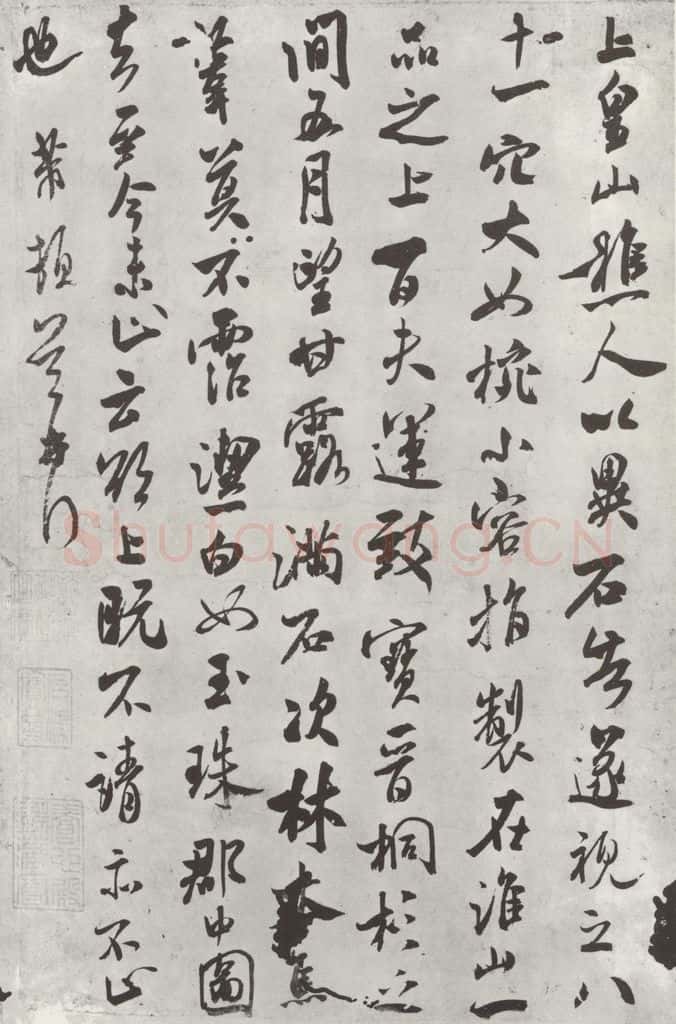 上皇山樵人以異石告遂視之八
十一穴大如椀小容指製在淮山一
品之上百夫運致寶晉桐杉之
間五月望甘露滿石次林木焦
葦莫不霑潔白如玉珠郡中圖
去至今未止云欲上既不請亦不止
也 芾頓首
Shufawang.CN